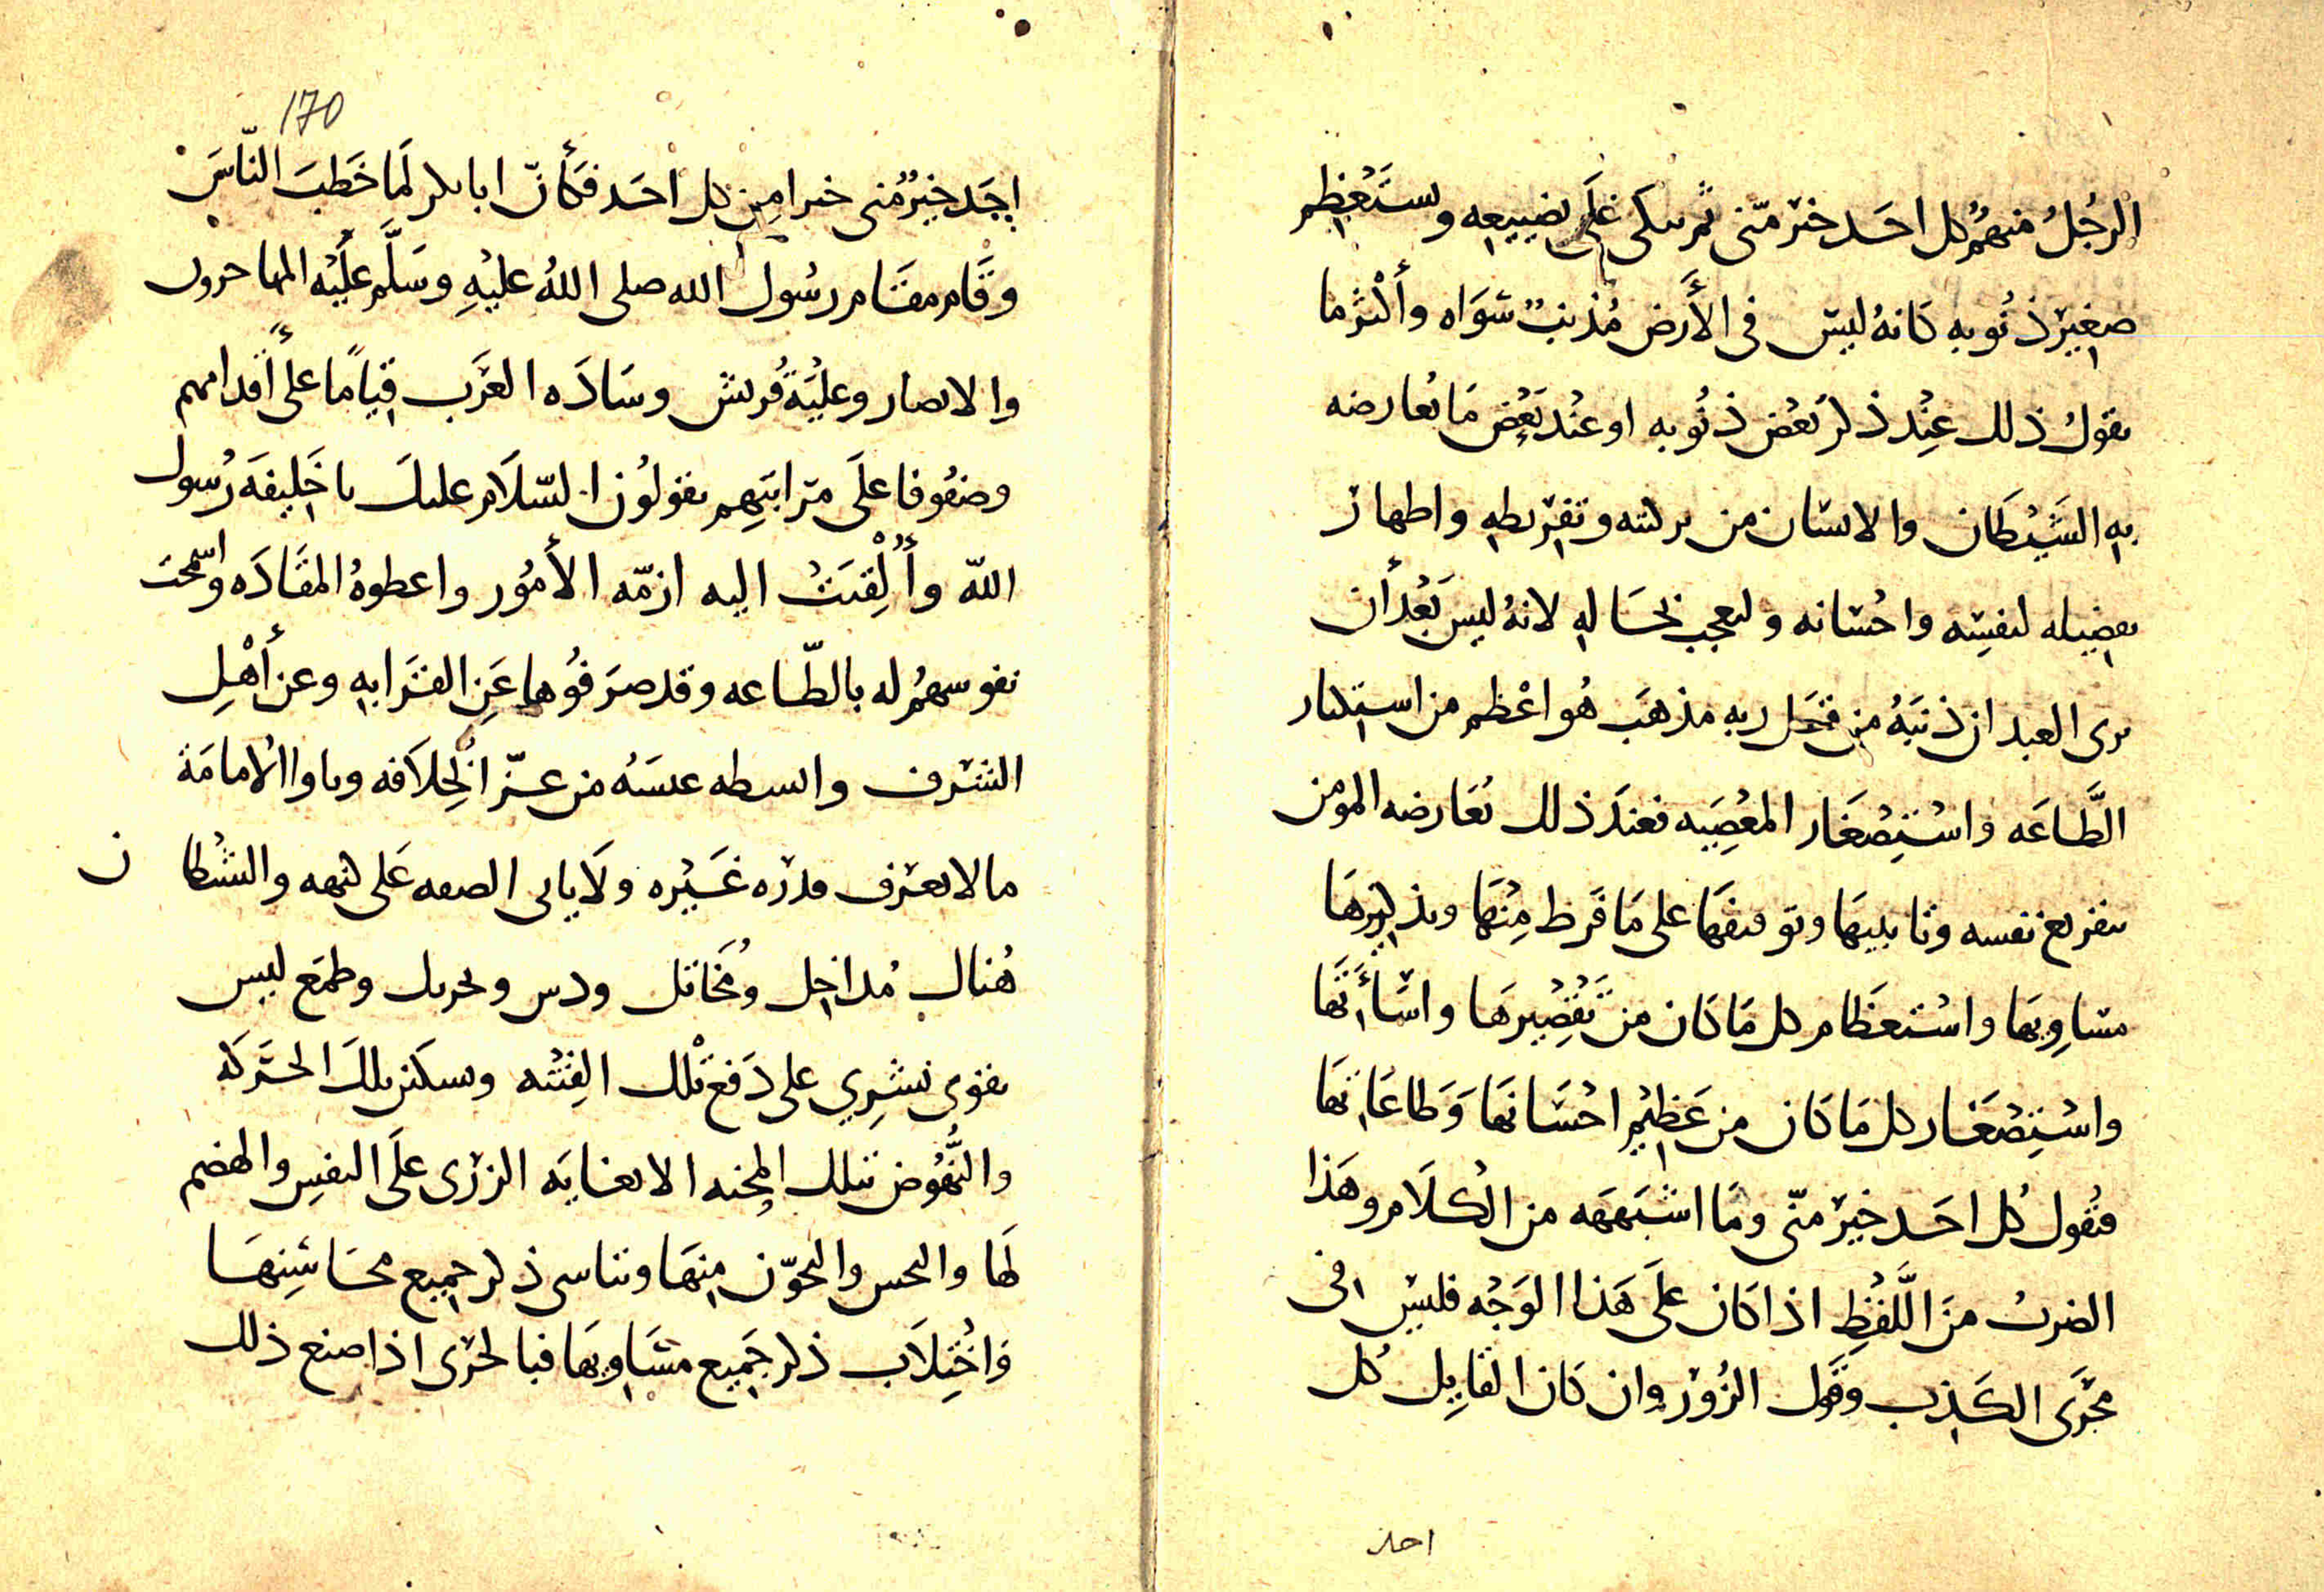 الرجُلُ منهُم كل احَد خير منّى ثم يبكى عَلَى تضييعِه ويستَعْظِم
صغِيرَ ذنُوبه كانهُ ليسَ فى الأَرض مُذنبٌ سَوَاه وأكْثرُ ما
يقولُ ذلك عِنْد ذكر بَعْض ذنُوبه او عنْد بَعْض مَا يُعارضه
بهِ الشَيْطان والانسان من تزكيته وتفريطهِ واظهار
تفضيله لنفسِه واحْسَانه والعجب بخصَالهِ لانهُ ليس بَعْد أن
يرى العبد ان ذنبَهُ من قبَل ربه مذهَب هُو اعْظم من استكثار
الطَّاعَه واسْتِصْغَار المعْصِيَه فعندَ ذلك يُعَارضه المومن
بتقريع نفسه وتانيبهَا وتوقيفهَا على مَا فَرط مِنْهَا وتذكيرهَا
مسَاوِيهَا واسْتعظَام كل مَا كان من تَقْصِيرهَا واسَاءَتهَا
واسْتِصْغَار كل مَا كان من عَظِيْم احْسَانهَا وَطاعَاتهَا
فتُقول كُل احَد خيرٌ منّى ومَا اشبَهَهَه من الكلَام وهَذا
الضرب منَ اللَّفْظِ اذا كان عَلَى هَذا الوَجْه فليسَ فى
مجْرَى الكَذِب وقول الزُور وان كان القايِل كُل
احد
170
احَد خيْرٌ مّنى خيرا مِن كل احَد فكَأنّ ابا بكر لَمَا خَطبَ النّاسَ
وقَام مقَام رسُول الله صلى اللهُ عليْهِ وسَلَّم علَيْه المهاجرون
والانصار وعِليَة قُريش وسَادَه العَرَب قيَامًا علَى أَقدامهم
وصفُوفا علَى مَراتبَهِم يقولُون السّلَام عليك يا خَلِيفَة رسُول
اللّه وأُلْقِيَتْ اليه ازمّه الأمُور واعطوهُ المقَادَه واسْمحت
نفوسهُم له بالطّاعه وقد صرَفُوها عَن القَرابهِ وعن أهْلِ
الشَرف والسطه عسَهُ من عزّ الخِلَافه وباوا الامامَة
ما لا يعْرف قدرَه غَيْره ولَا ياتى الصفه علَى كنهه والشيْطان
هُناك مُداخِل ومُخَاتل ودس وتحريك وطمَع ليس
يقوى بَشرِي على دَفع تلْك الفِتْنه وتسكين تلكَ الحَركَه
والنُّهُوض بتلك المِحْنه الا بغايَه الزرى علَى النفِس والهضم
لهَا والتحوّن منهَا وتناسى ذكر جميع محَاسِنِهَا
وَاجْتِلَاب ذكر جَمِيع مسَاوِيهَا فبالحَرَى اذا صنع ذلك